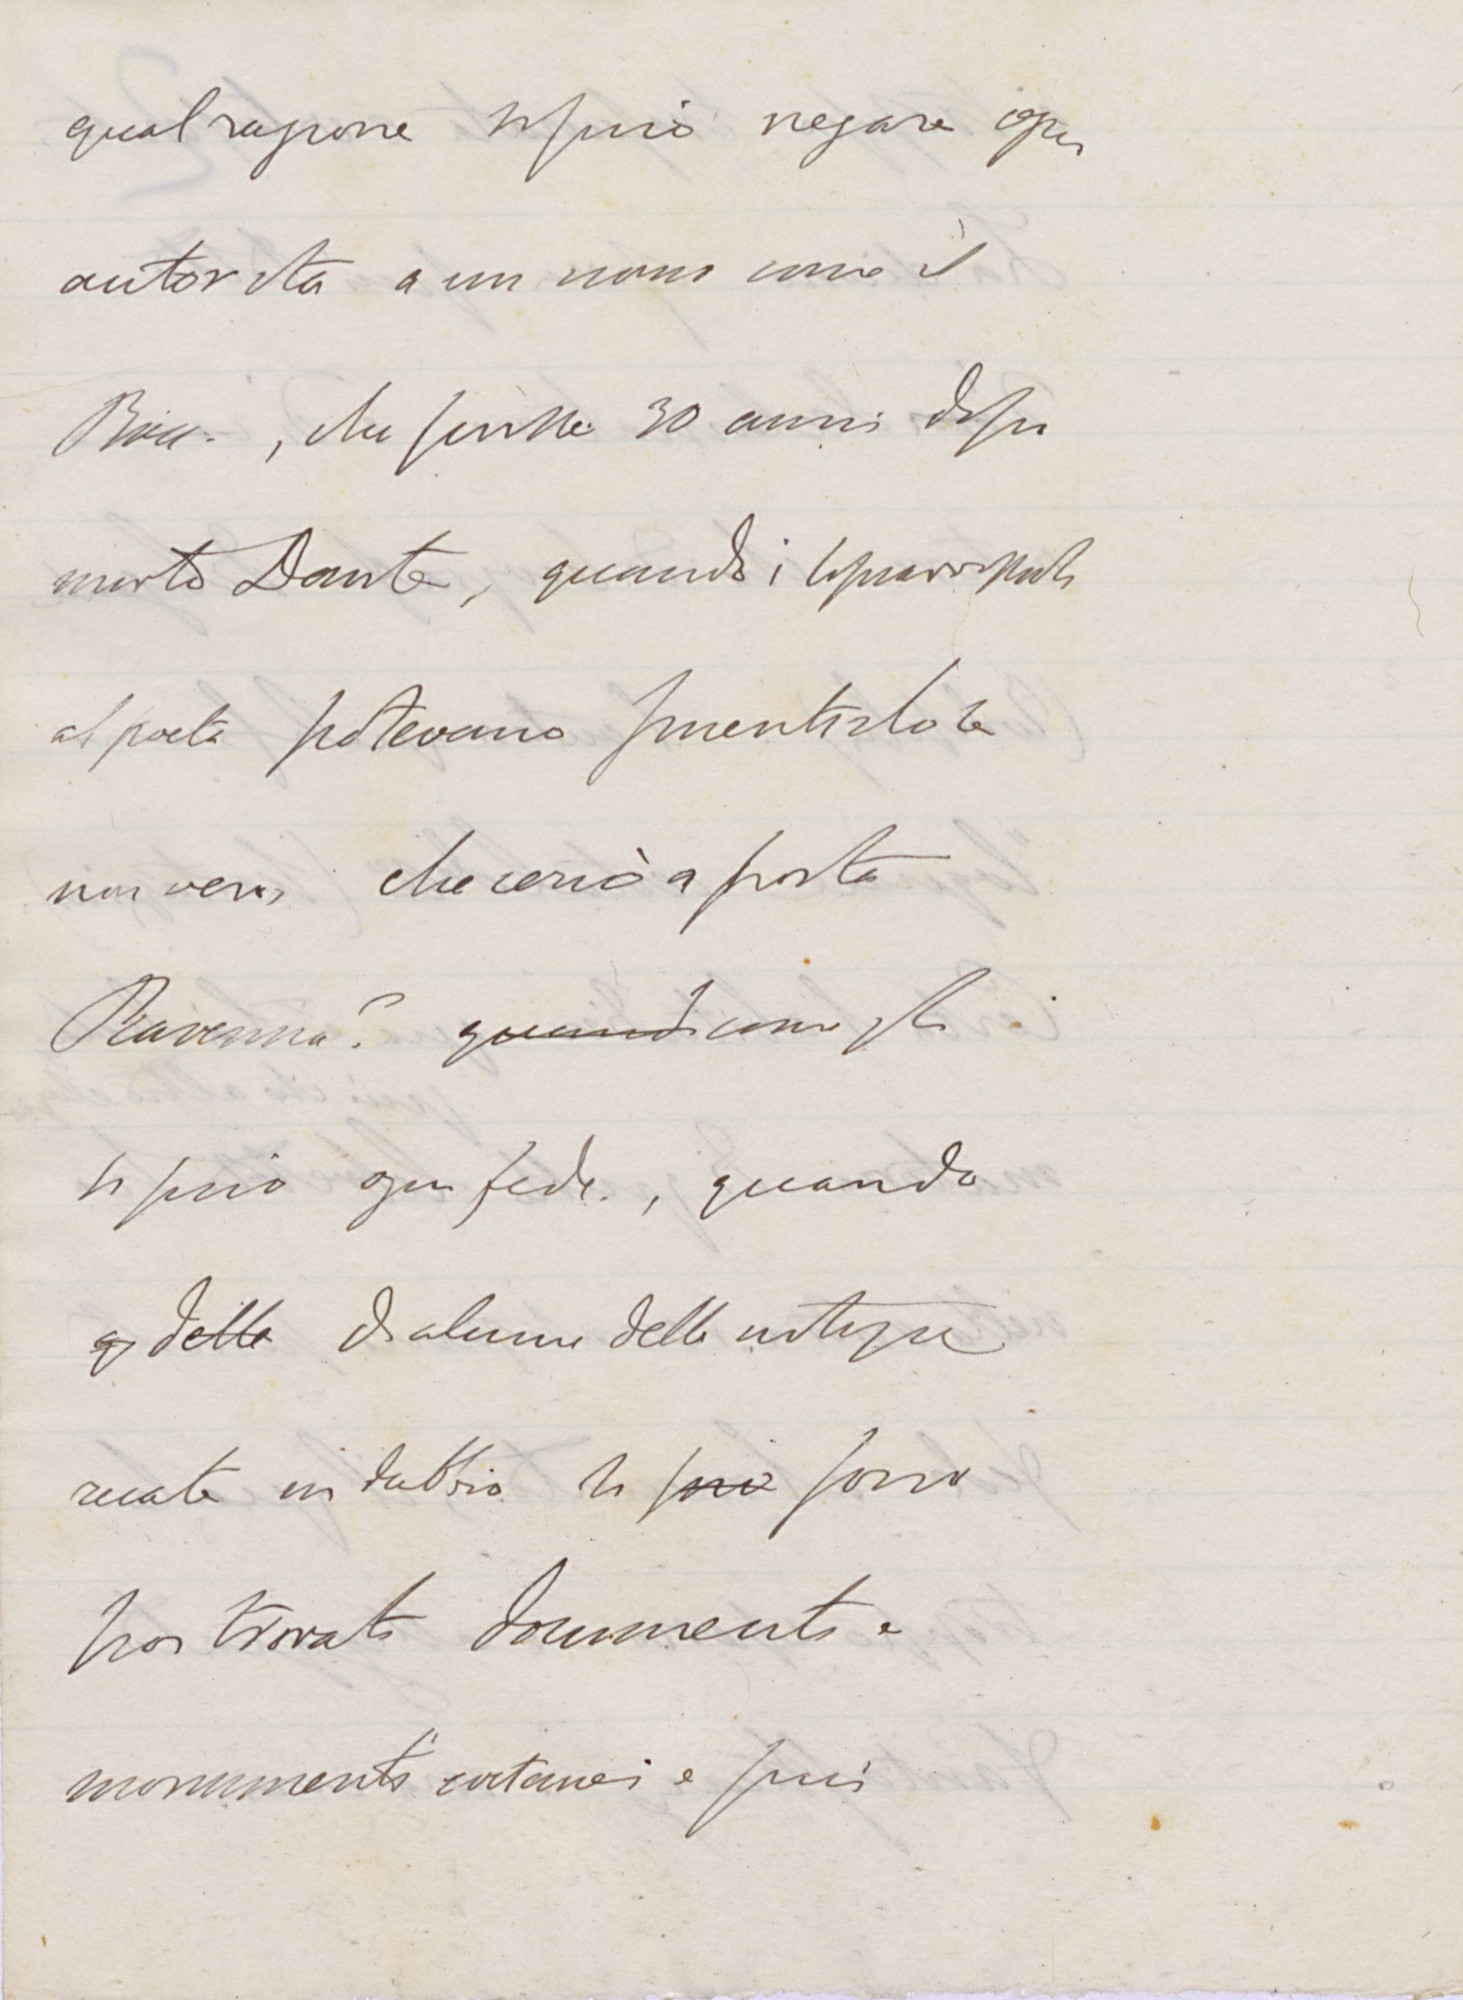 qual ragione si può negare ogni
autorità a un uomo come il
Bocc., che scrisse 30 anni dopo
morto Dante, quando i sopravvissuti
al poeta potevano smentirlo se
non vero, che cercò a posta
Ravenna? quando come gli
si può ogni fede, quando
q della di alcune delle notizie
recate in dubbio si può sono
poi trovati documenti e
monumenti coetanei e poi